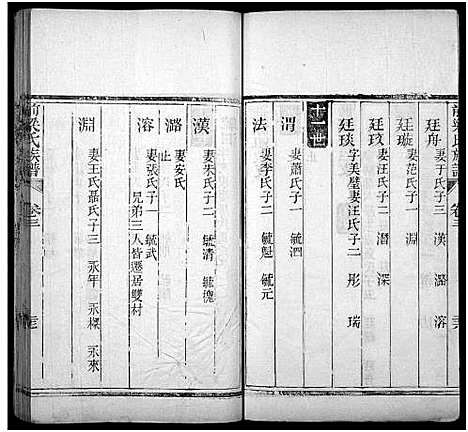 前梁氏族譜 卷三
廷舟 妻于氏子三 漢 潞 溶
廷璇 妻范氏子一 淵
廷玫 妻汪氏子二 潛 深
廷琰 字美璧妻汪氏子二 彤 瑞
十二世
渭 妻蕭氏子一 泗
止
法 妻李氏子二 毓魁 毓元
漢 妻朱氏子二 毓清 毓瑰
潞 妻安氏
止
溶 妻張氏子一 毓武
兄弟三人皆遷居雙村
淵 妻王氏聶氏子三 永年 永樑 永來
前梁氏族譜 卷三